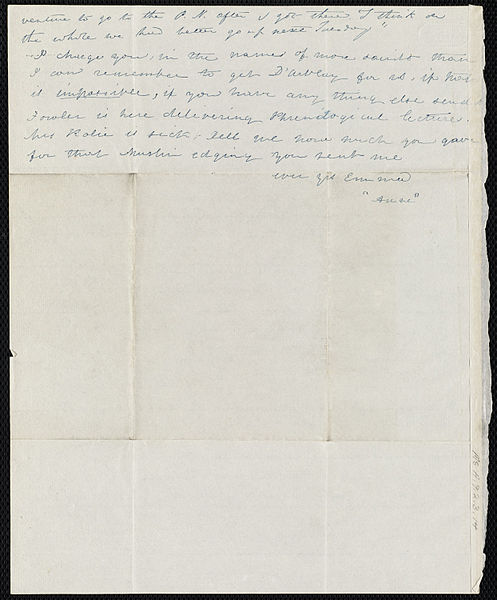 venture to go to the P. N. after I got there I think on
the whole we had better go up next Tuesday"
I charge you, in the names of more saints than
I can remember to get D'arblay for us, if that
is impossible, if you have any thing else send
Fowler is here delivering Phrenological lectures.
Mrs is sick. Tell me how much you gave
for that Muslin edging you sent me
ever yrs Emma
"Anne"